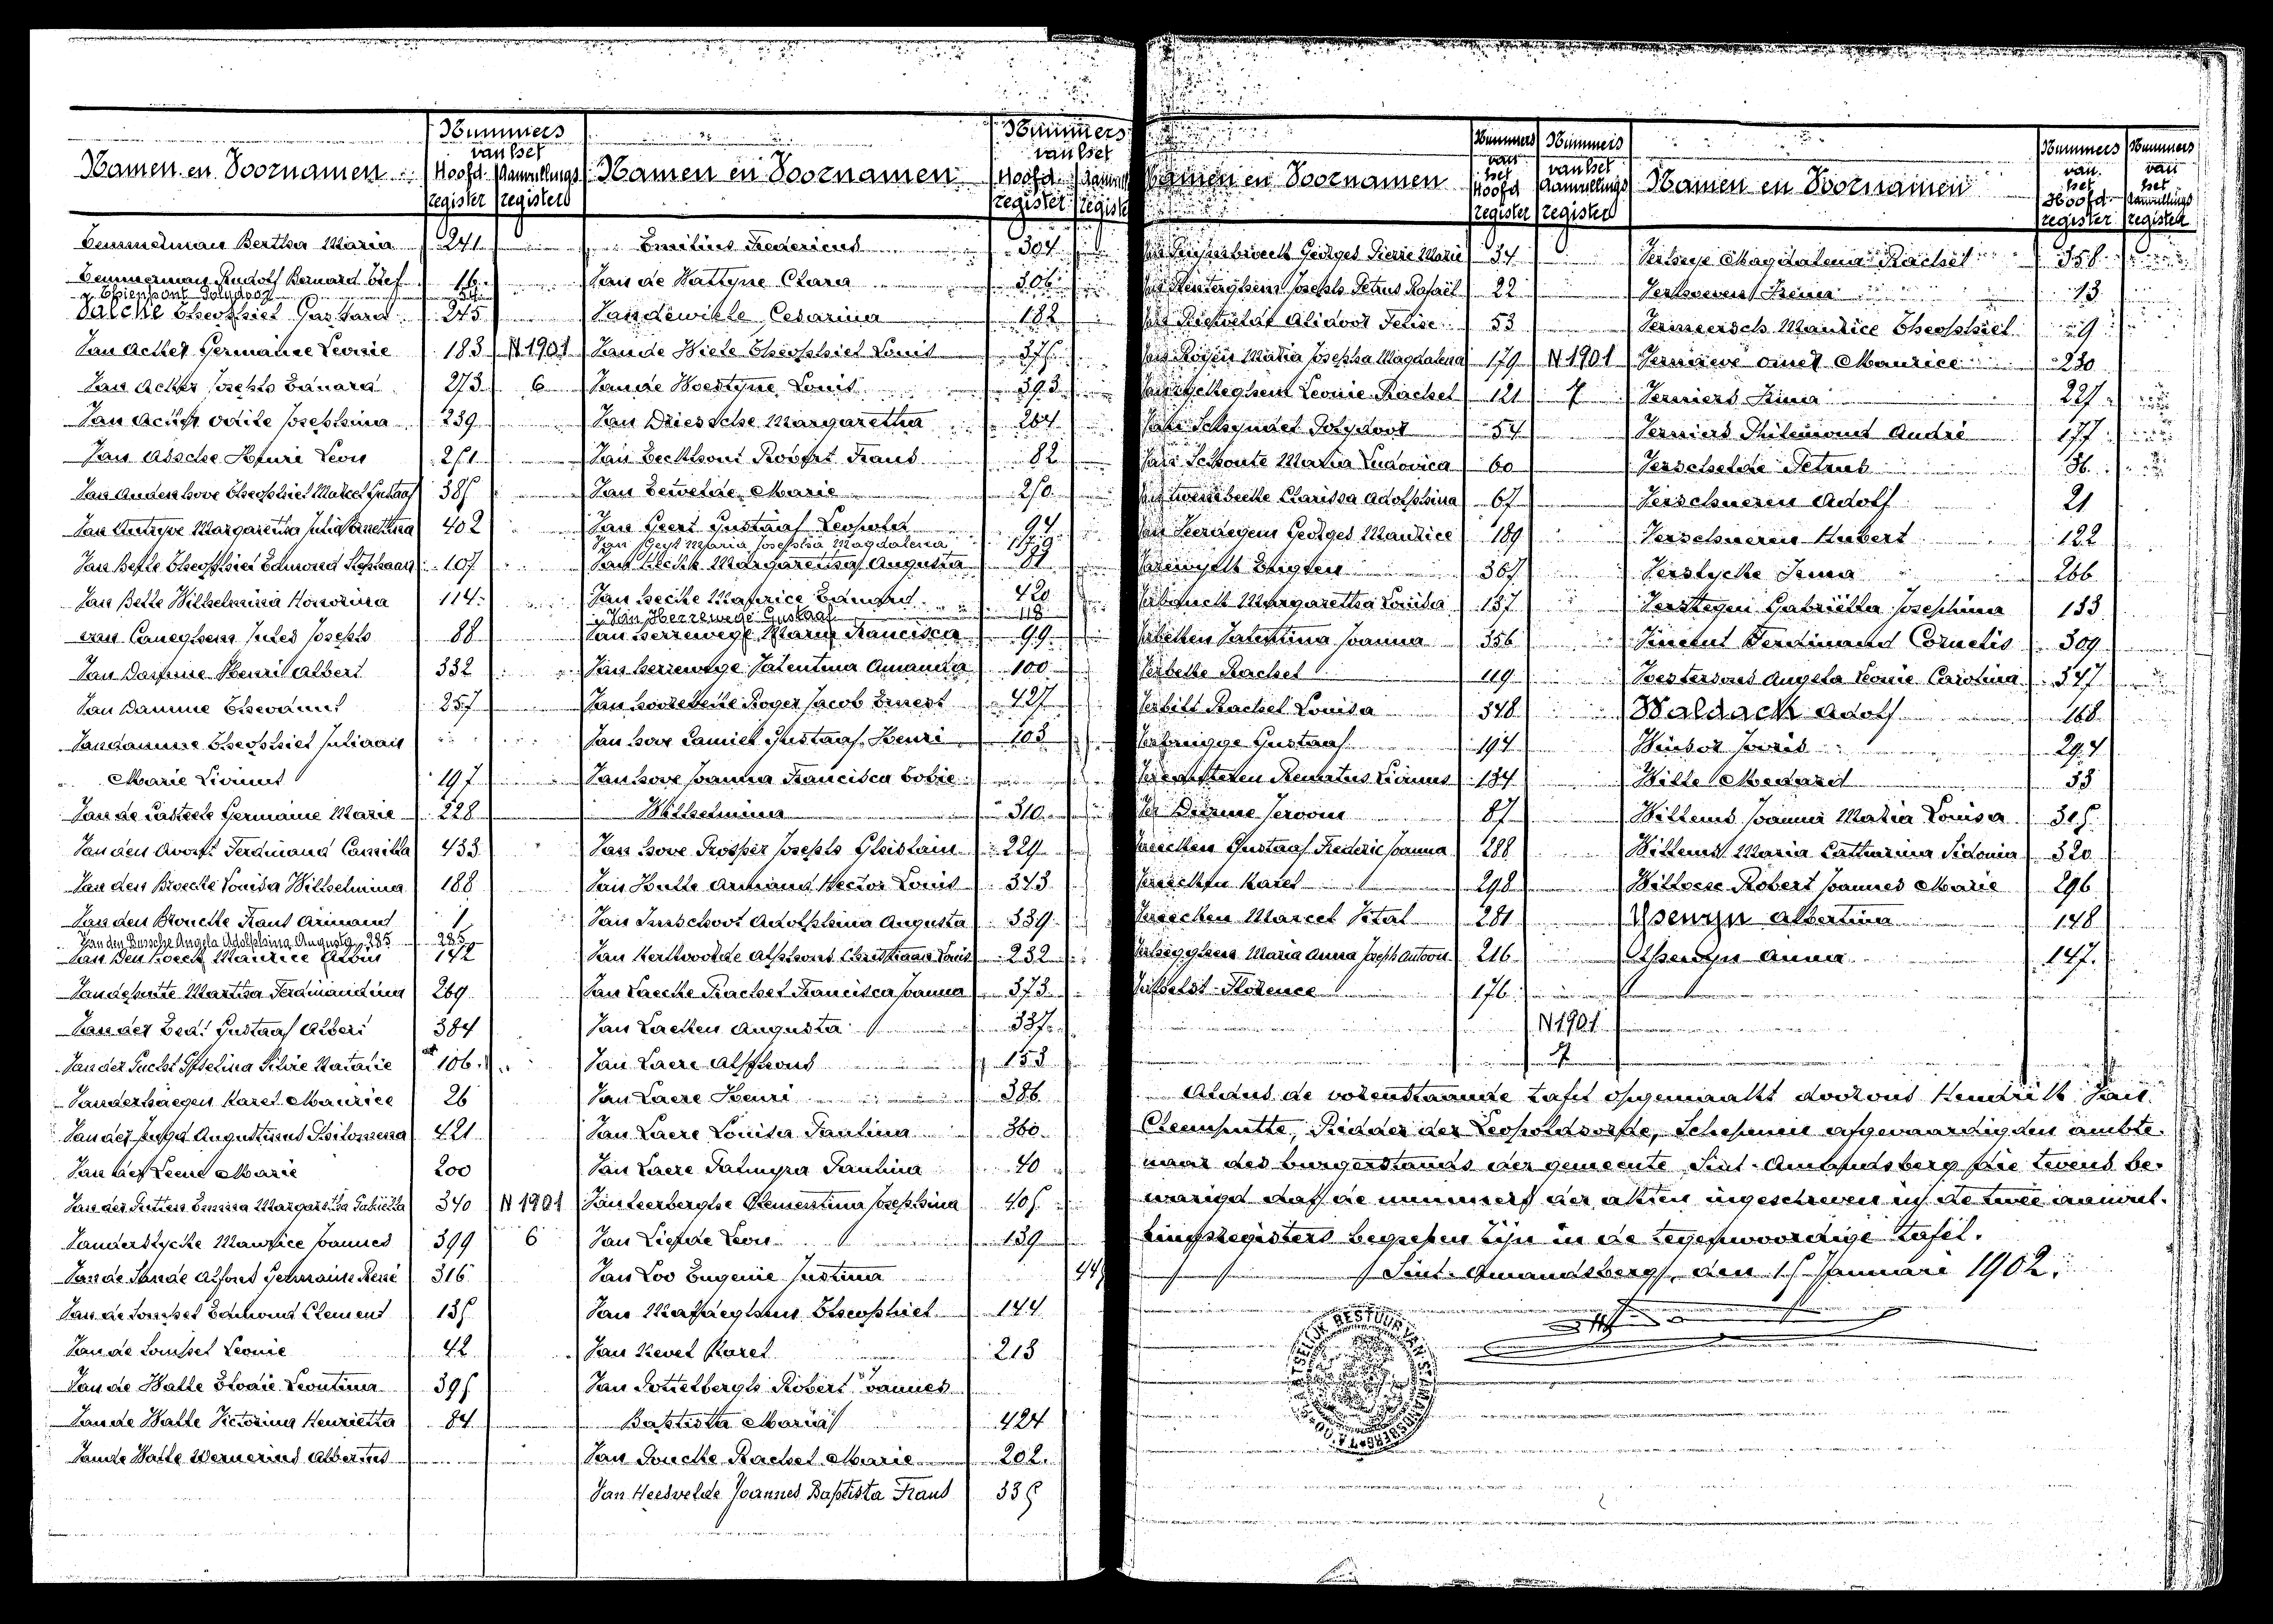 Namen en Voornamen
Nummers van het
Hoofdregister
Aanvullingsregister
Temmerman Bertha Maria 241
Temmerman Rudolf Bernard Jozef 16
Thienpont Polydoor
Valcke Theophiel Gustaaf 245
Van Acker Germaine Leonie 183 N 1901
Van Acker Joseph Eduard 273 6
Van Acker Odile Josephina 239
Van Assche Henri Leon 251
Van Audenhove Theophiel Marcel Gustaaf 385
Van Autryve Margaretha Julia 402
Van Belle Theophiel Edmond Stephaan 107
Van Belle Wilhelmina Honorina 114
van Caneghem Jules Joseph 88
Van Damme Henri Albert 332
Van Damme Theoduul 257
Van damme Theophiel Juliaan
Marie Livinus 197
Van de Casteele Germaine Marie 228
Van den Avont Ferdinand Camilla 433
Van den Broecke Louisa Wilhelmina 188
Van den Broucke Frans Armand 1
Van den Bussche Angela Adolphina Augusta 285 285
Van Den Hoeck Maurice Albin 142
Van de putte Martha Ferdinandina 269
Van der Eed. Gustaaf Albert 384
Van der Gucht Silvie Natalie 106
Vanderhaegen Karel Maurice 26
Van der Jeugd Augustinus Philomena 421
Van der Leene Marie 200
Van der Putten Emma Margaretha Gabriella 340 N 1901
Vanderstycke Maurice Joannes 399 6
Van de Sande Alfons Germaine René 316
Van de Edmond Clement 135
Van de Leonie 42
Van de Walle Elodie Leontina 395
Van de Walle Victorina Henrietta 84
Van de Walle Wernerius Albertus
Namen en Voornamen
Nummers van het
Hoofdregister
Emilius Fredericus 304
Van de Wattyne Clara 306
Van de wiele Cesarina 182
Van de Wiele Theophiel Louis 375
Van de Woestyne Louis 393
Van Driessche Margaretha 264
Van Eeckhout Robert Frans 82
Van Eewelde Marie 250
Van Geert Gustaaf Leopold 94
Van Gest Maria Josephia Magdalena 179
Van Hecke Margaretha Augusta 81
Van hecke Maurice Eduard 420
Van Herrewege Gustaaf 118
Van herrewege Maria Francisca 99
Van herrewege Valentina Amanda 100
Van hoorebeke Roger Jacob Ernest 427
Van hove Camiel Gustaaf Henri 103
Van hove Joanna Francisca Sobie
Wilhelmina 310
Van hove Prosper Joseph Ghislain 229
Van Hulle Armand Hector Louis 343
Van Imschoot Adolphina Augusta 339
Van Kerkvoorde Alphons Christiaan Louis 232
Van Laecke Rachel Francisca Joanna 373
Van Laeken Augusta 337
Van Laere Alphons 153
Van Laere Henri 386
Van Laere Louisa Paulina 360
Van Laere Palmyra Paulina 40
Van Leerberghe Clementina Josephina 405
Van Liefde Leon 139
Van Loo Eugenie Justina 44
Van Maldeghem Theophiel 144
Van Nevel Karel 213
Van Pottelbergh Robert Joannes
Baptista Maria 424
Van Poucke Rachel Marie 202
Van Heesvelde Joannes Baptista Frans 335
Namen en Voornamen
Nummers van het Hoofdregister
Nummers van het Aanvullingsregister
Georges Pierre Marie 34
Van Renterghem Joseph Petrus Rafaël 22
Van Rietvelde Alidoor Felise 53
Van Royen Maria Josepha Magdalena 179 N 1901
Van ryckeghem Leonie Rachel 121 7
Van Schoyndel Polydoor 54
Van Schoute Maria Ludovica 60
Van tweenbeeke Clarissa Adolphina 67
Van Veerdegem Georges Maurice 189
Varewyck Eugeen 367
Verbauck Margaretha Louisa 137
Verbeken Valentina Joanna 356
Verbeke Rachel 119
Verbilt Rachel Louisa 348
Verbrugge Gustaaf 194
Vercauteren Renatus Livinus 134
Ver Deurme Jeroom 87
Vereecken Gustaaf Frederic Joanna 288
Vereecken Karel 298
Vereecken Marcel Vital 281
Verhegghen Maria Anna Joseph Antoon 216
Verhelst Florence 176
N 1901
7
Namen en Voornamen
Nummers van het Hoofdregister
Nummers van het Aanvullingsregister
Verheye Magdalena Rachel 358
Verhoeven Irena 13
Vermeersch Maurice Theophiel 9
Vernaeve Omer Maurice 230
Verniers Irma 227
Verniers Philemond André 177
Verschelde Petrus 36
Verschueren Adolf 21
Verschueren Hubert 122
Verstycke Irma 266
Verstegen Gabriella Josephina 133
Vincent Ferdinand Cornelis 309
Voestersons Angela Leonie Carolina 347
Waldack Adolf 168
Windor Joris 294
Wille Medard 33
Willems Joanna Maria Louisa 305
Willems Maria Catharina Sidonia 320
Willocx Robert Joannes Marie 296
Ysenyn Albertina 148
Ysenyn Anna 147
Aldus de vorenstaande tafel opgemaakt door ons Hendrik Van
Clemputte, Ridder der Leopoldsorde, Schepenen afgevaardigden ambte-
naar des burgerstands der gemeente Sint-Amandsberg die tevens be-
vestigd dat de nummers der akten ingeschreven in de twee aanvul-
lingsregisters begrepen zijn in de tegenwoordige tafel.
Sint-Amandsberg, den 15 Januari 1902.